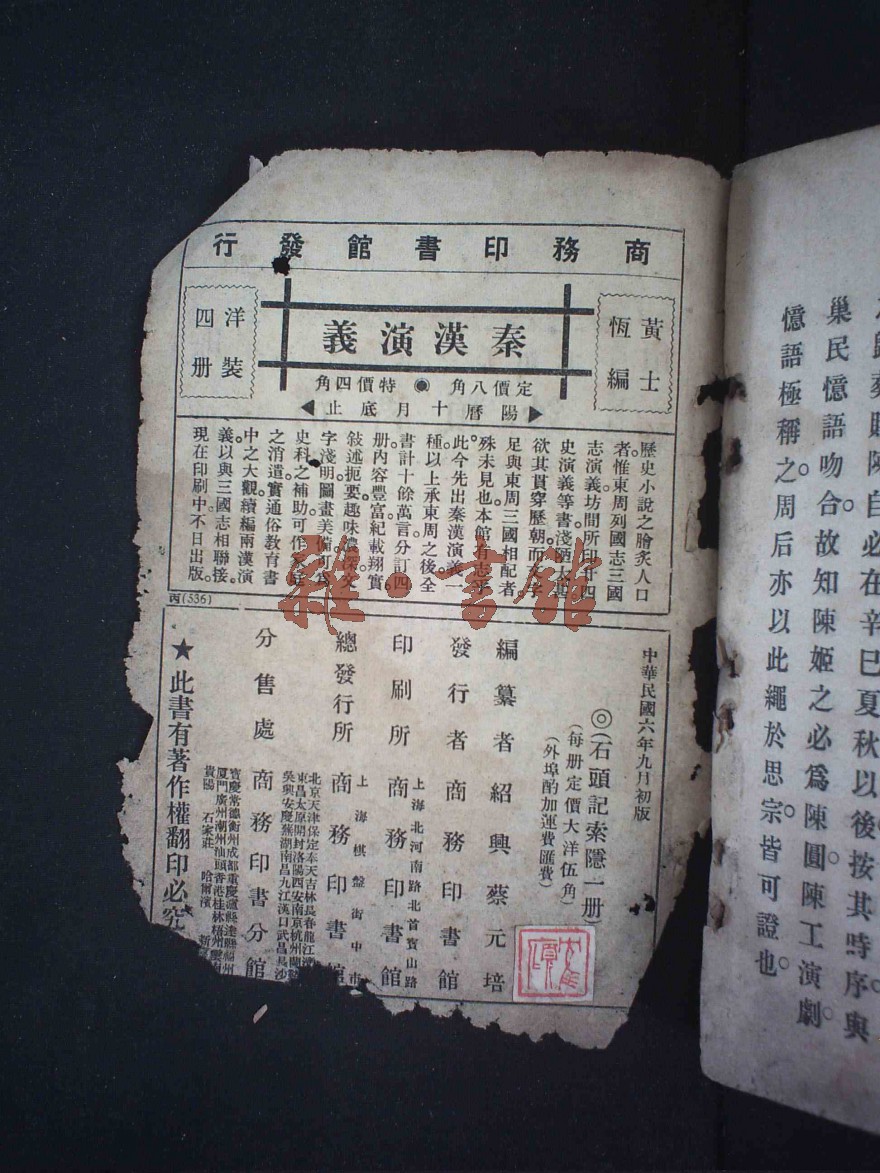 商務印書館發行
黃士恆編
秦漢演義
定價八角 特價四角
陽曆十月底止
洋裝四册
歷史小說之膾炙人口
者惟東周列國志三國
志演義坊間所印廿四
史演義等書淺陋太甚
欲其貫穿歷朝而文字
足與東周三國相配者
殊未見也本館有志乎
此今先出秦漢演義一
種以上承東周之後全
書計十餘萬言分訂四
册內容豐富紀載翔實
敍述扼要趣味濃深文
字淺明圖畫美備可爲
史科之補助可作家庭
之消遣實通俗教育書
中之大觀續編兩漢演
義以與三國志相聯接
現在印刷中不日出版
丙(536)
中華民國六年九月初版
◎(石頭記索隱一册)
(每册定價大洋伍角)
(外埠酌加運費匯費)
編纂者 紹興蔡元培
發行者 商務印書館
上海北河南路北首寶山路
印刷所 商務印書館
上海棋盤街中市
總發行所 商務印書館
北京天津保定奉天吉林長春龍江濟
東昌太原開封洛陽西安南京杭州蘭谿
吳興安慶蕪湖南昌九江漢口武昌長沙
分售處 商務印書分館
寶慶常德衡州成都重慶瀘縣達縣福州
厦門廣州潮州汕頭香港桂林梧州雲南
貴陽 石家莊 哈爾濱 新
★此書有著作權翻印必究
雜·書館
歸葬
陳自必在辛巳夏秋以後按其時序與
巢民憶語吻合。故知陳姬之必爲陳圓。陳工演劇。
憶語極稱之。周后亦以此繩於思宗。皆可證也。